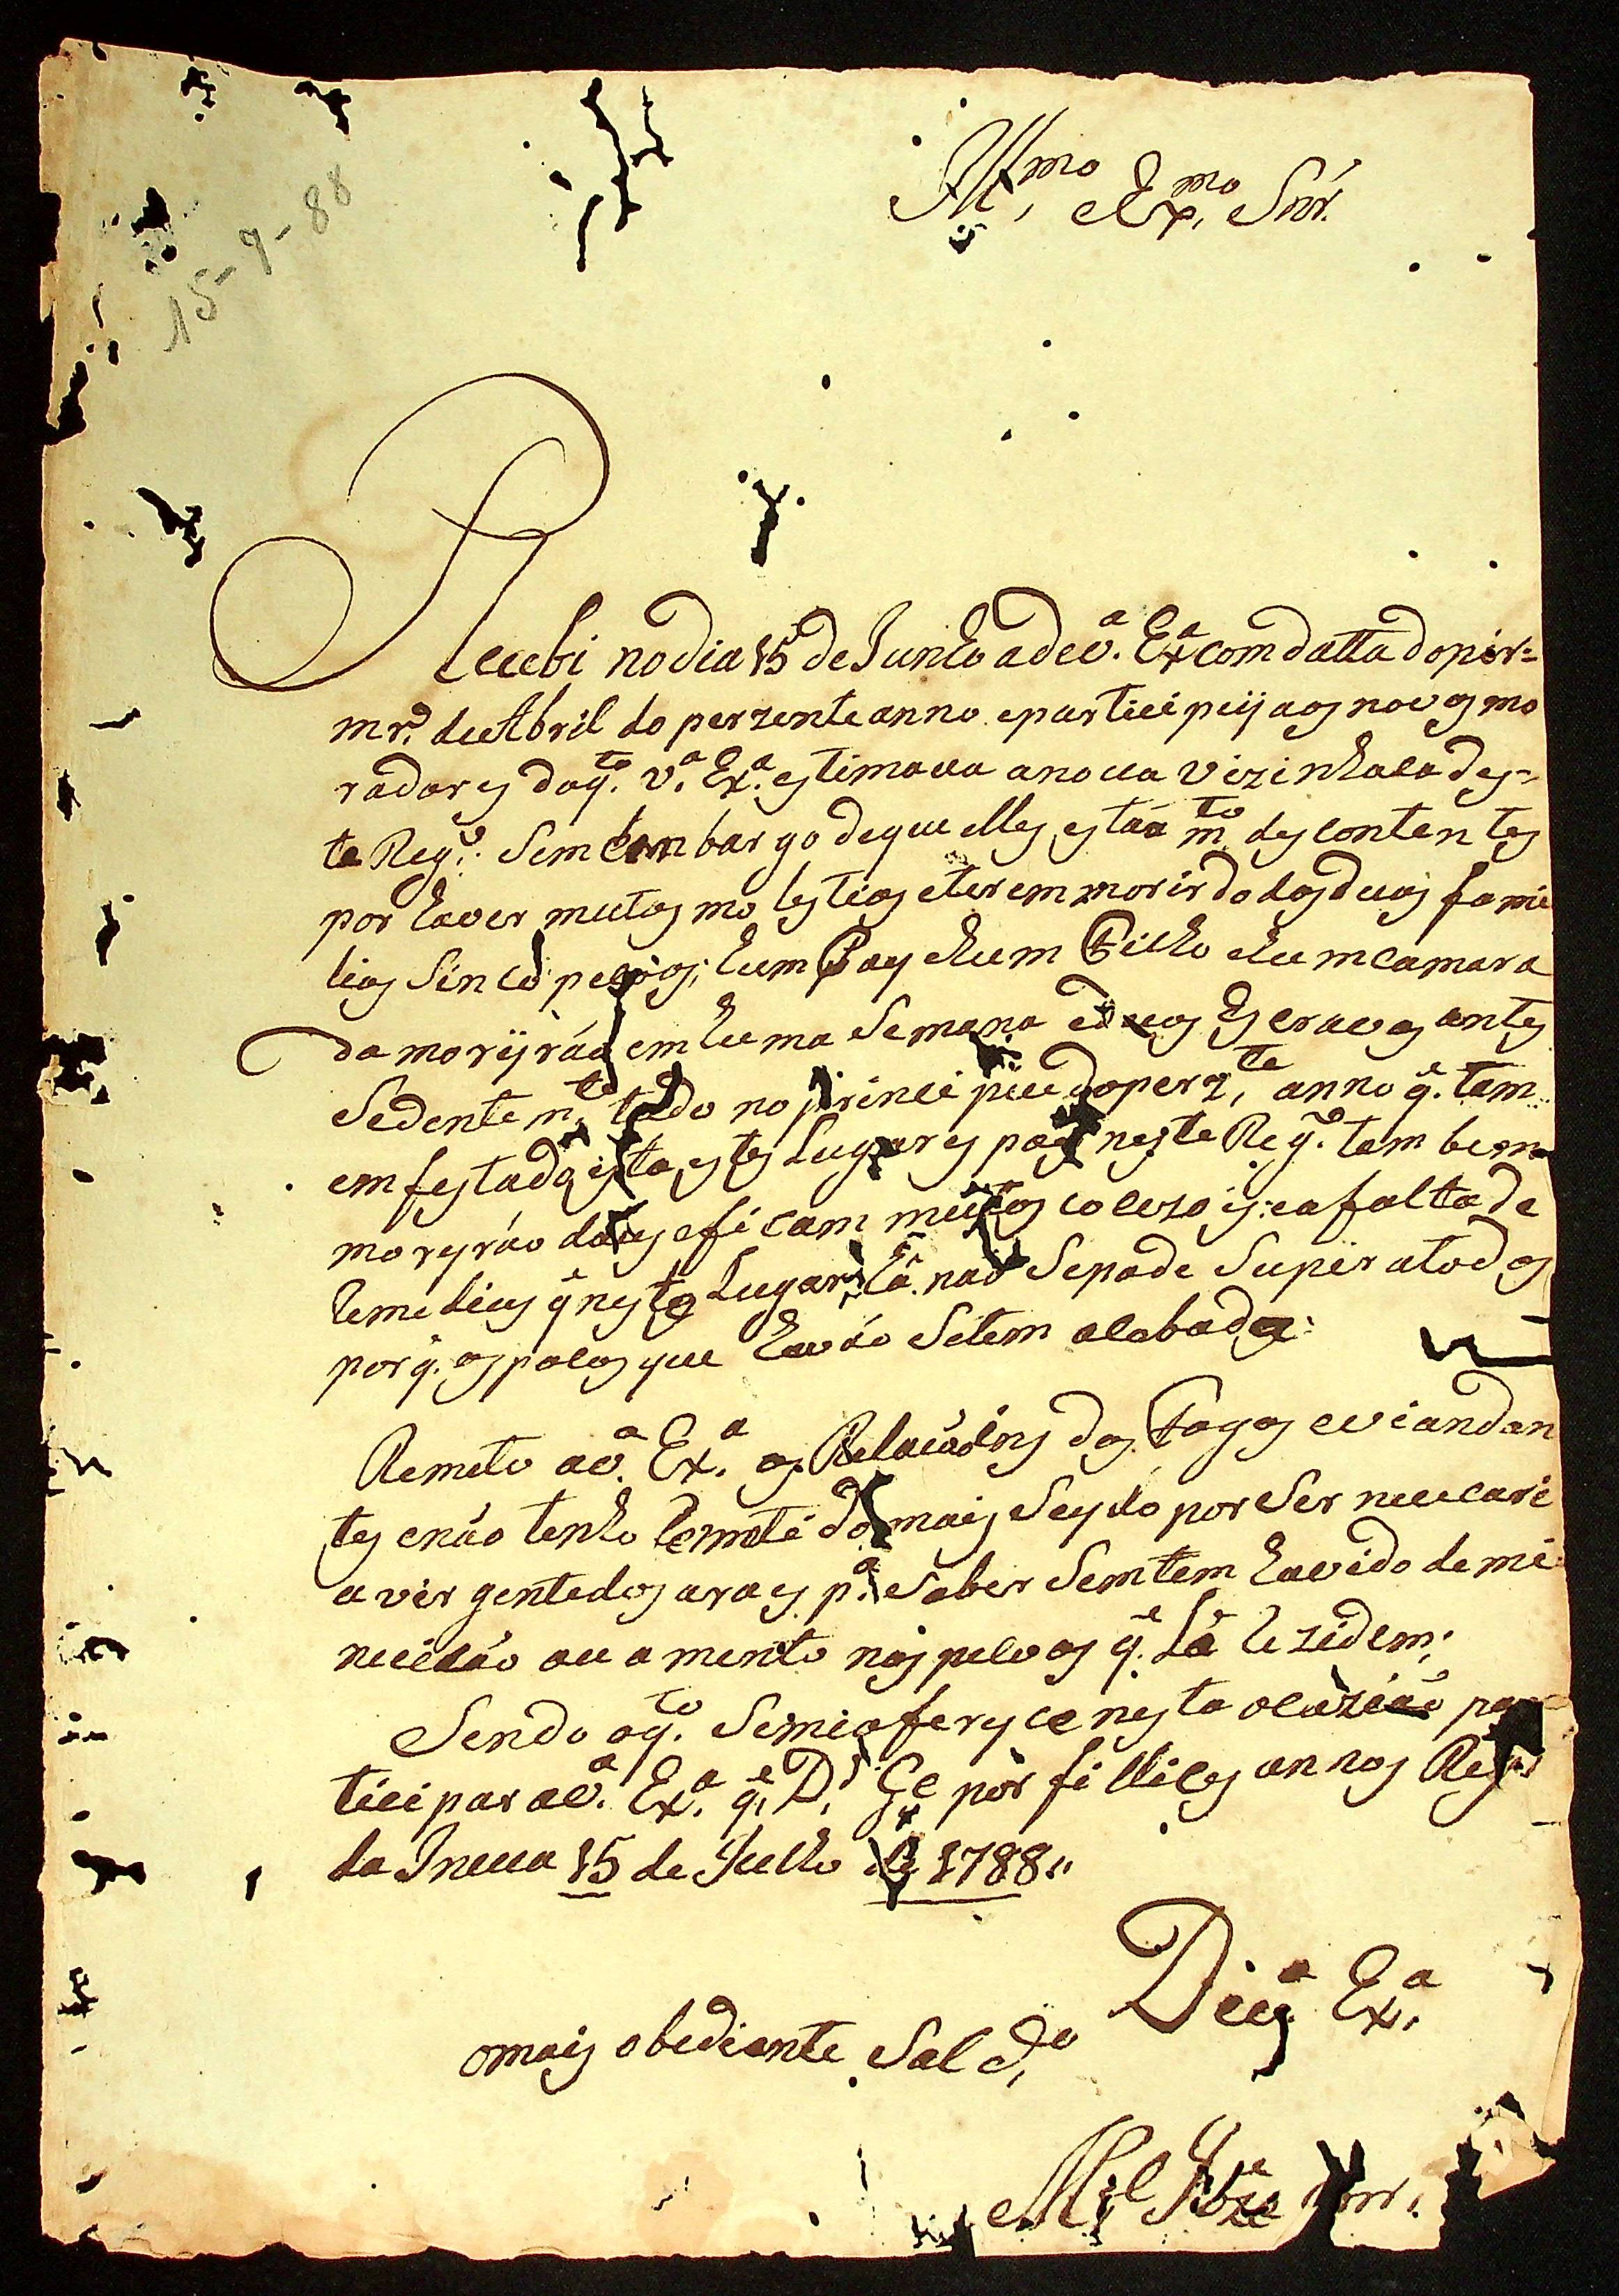 15-7-88
Illmo, Exmo, Snr.
Recebi no dia 15 de Junho a de v.ª Ex.ª com datta do pir=
mr.º de Abril do perzente anno e particepeij aos novos mo
radores do q.to v.ª Ex.ª estimava a nova vizinhaca des=
te Reg.º Sem Embargo de que elles estáa m.to descontentes
por haver muitas molestias e terem morirdo das duas fami
lias Sinco pecoas; hum Pay e hum Filho e hum camara
da moryráo em huma Semana e duas Escravas antes
Sedentem.te tudo no principiu do perz.te anno q.e tem
emfestado esta estes Lugares pois neste Reg.º tambem
moryráo dois e ficam muitos co cezois: e a falta de
Remedius q.e neste Lugar há. nao Se pode Super a todos
por q. os pocos que haváo Se tem acabado:
Remeto a v.ª Ex.ª as Relacóins dos Fogos e viandan
tes e náo tenho Remetido mais Seydo por Ser nececari
a vir gente dos araes p.ª Saber Sem tem havido demi
nuicáo ou amento nos povos q.e Lá Rezidem;
Sendo o q.to Se mi oferyce nesta ocaziáo par
ticipar a v.ª Ex.ª q.e D.s G.e por fillices annos Reg.º
da Inuua 15 de Julho de 1788,,
De v.ª Ex.ª
o mais obediente Sol d.º
M.el Joze